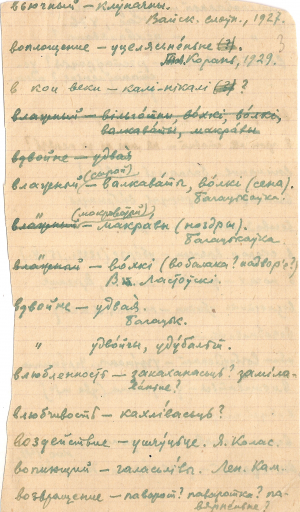 вьючный – клуначны.
Вайск. слоўн., 1927.
воплощение – уцелясьненьне (?).
Корань, 1929.
в кои веки – калі-нікалі (?)?
влажный – вільготны, во́лкі, во́лкі,
валкава́ты, макра́вы
вдвойне – удвая
(сырой)
влажный – валкава́ты, во́лкі (сена).
Багацькаўка.
(мокроватый)
влажный – макравы (ноздры).
Багацькаўка
влажный – во́лкі (воблака? надвор'е?)
В. Ластоўскі.
вдвойне – удвая.
Багацьк.
" удвойчы, удубальт.
влюбленность – закаханасьць? заміла-
ваньне?
влюбчивость – кахлівасьць?
воздействие – уплыў. Я. Колас.
вопиющий – галасілівы. Лен. Кам.
возвращение – паварот? паваротка? па-
вярненьне?